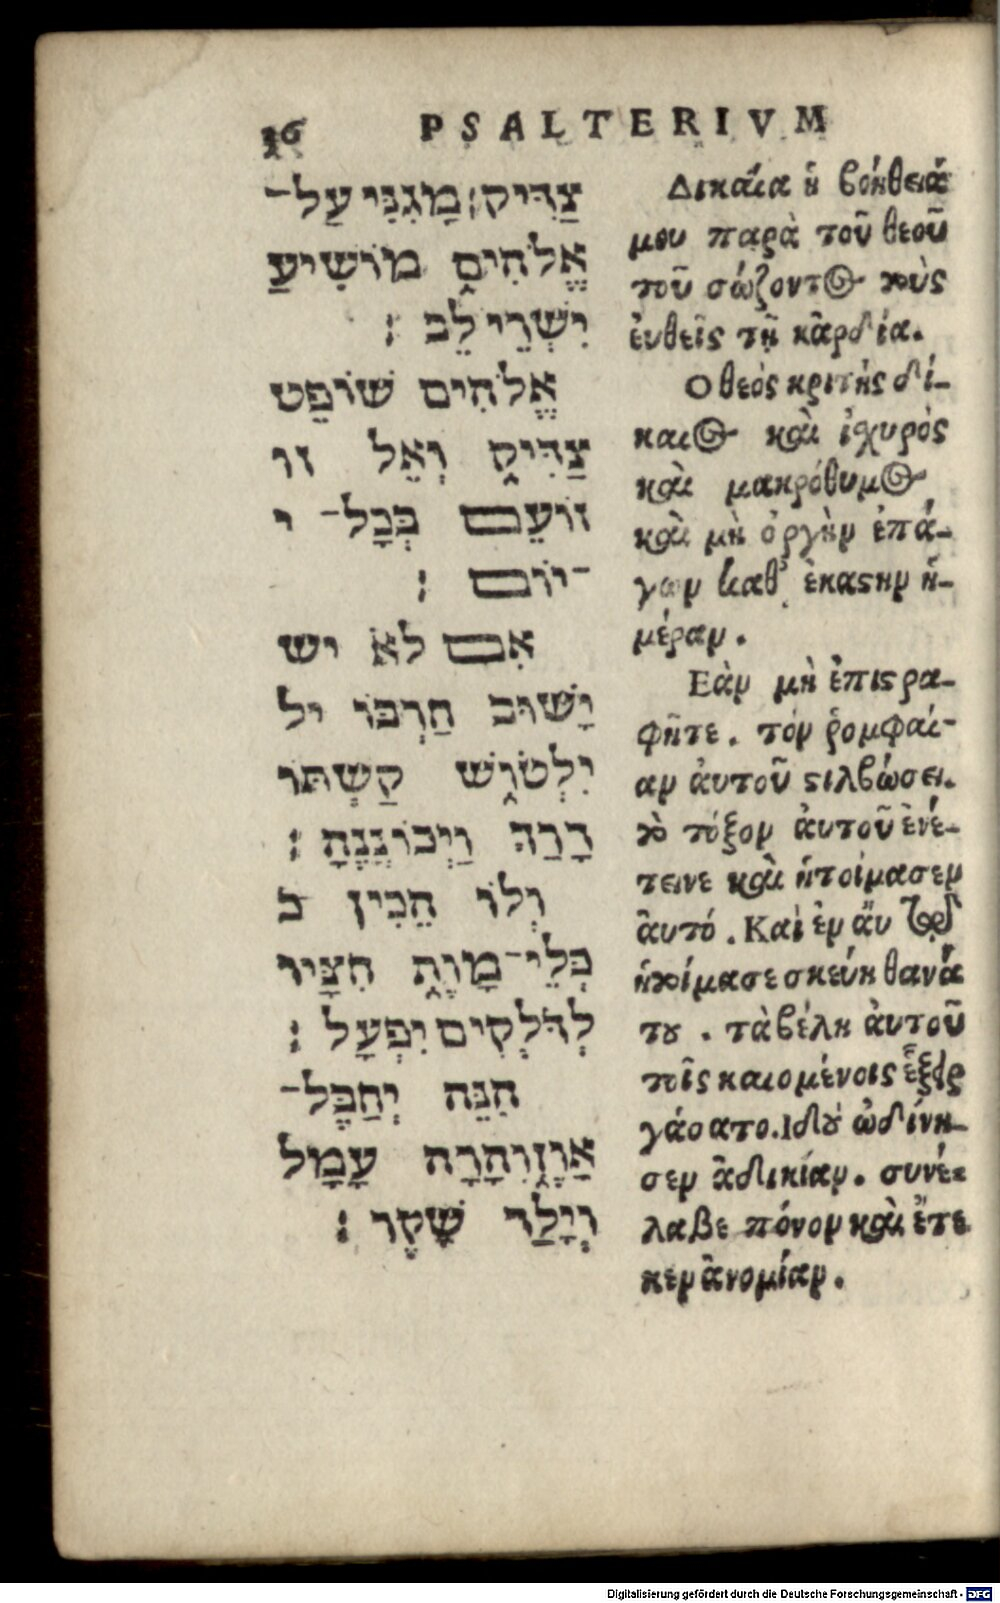 36 PSALTERIVM
צַדִּיק׃ מָגִנִּי עַל־
אֱלֹהִים מוֹשִׁיעַ
יִשְׁרֵי לֵב ׃
אֱלֹהִים שׁוֹפֵט
צַדִּיק וְאֵל זו
זוֹעֵם בְּכָל־ י
־יוֹם ׃
אִם לֹא יש
יָשׁוּב חַרְבּוֹ יל
יִלְטוֹשׁ קַשְׁתּוֹ
דָרַךְ וַיְכוֹנְנֶהָ ׃
וְלוֹ הֵכִין כ
כְּלֵי־מָוֶת חִצָּיו
לְדֹלְקִים יִפְעָל ׃
הִנֵּה יְחַבֶּל־
אָוֶן וְהָרָה עָמָל
וְיָלַד שָׁקֶר ׃
Δικαία ἡ βοήθειά
μου παρὰ τοῦ θεοῦ
τοῦ σώζοντος τοὺς
ἐυθεῖς τῇ κᾶρδία.
Ο θεός κριτής δί-
καιος καὶ ἰχυρός
καὶ μακρόθυμος
καὶ μὴ ὀργὴν ἐπά-
γων καθ' ἑκαστην ἡ-
μέραν.
Εὰν μὴ ἐπιστρα-
φῆτε. τόν ῥομφαί-
αν ἀυτοῦ στιλβώσει.
τὸ τόξον ἀυτοῦ ἐνέ-
τεινε καὶ ἡτοίμασεν
ἀυτό. Καὶ ἐν ἀυτῷ
ἡτοίμασε σκεύη θανά
του. τὰ βέλη ἀυτοῦ
τοῖς καιομένοις ἐξερ
γάσατο. Ιδού ὠδίνη-
σεν ἀδικίαν. συνέ-
λαβε πόνον καὶ ἔτε
κεν ἀνομίαν.
Digitalisierung gefördert durch die Deutsche Forschungsgemeinschaft - DFG